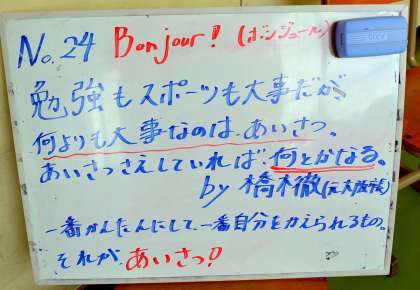 No.24 Bonjour! (ボンジュール)
勉強もスポーツも大事だが、
何よりも大事なのは、あいさつ。
あいさつさえしていれば、何とかなる。
by 橋下徹(元大阪
一番かんたんにして、一番自分をかえられるもの。
それが、あいさつ!